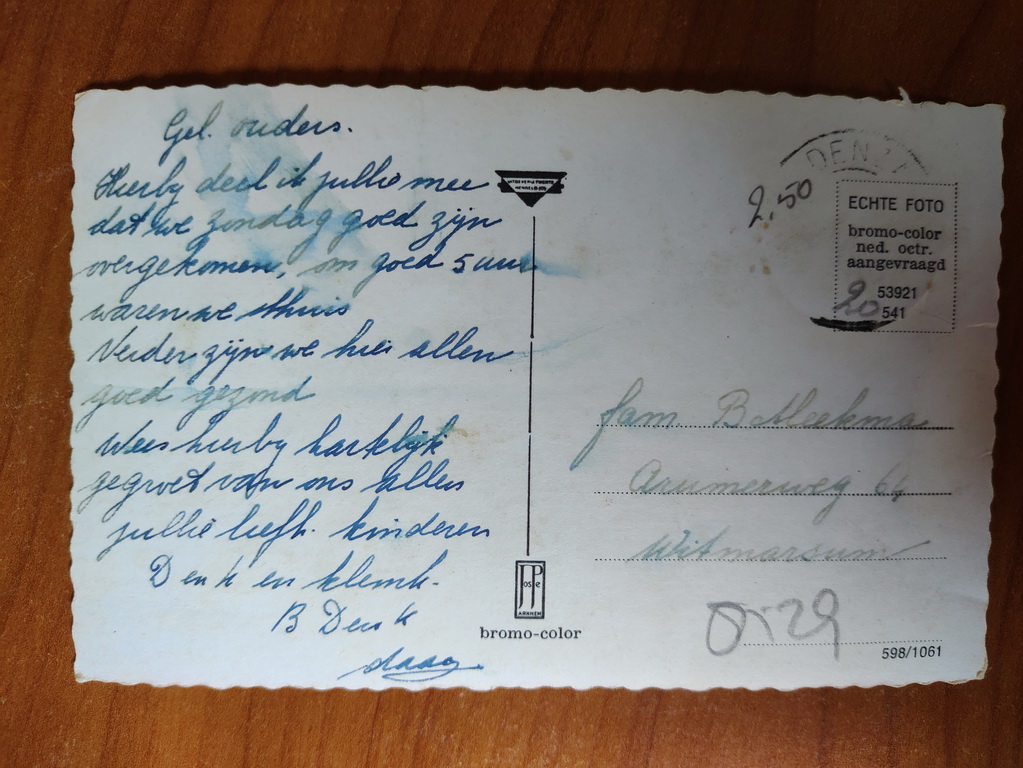 Gel. ouders.
Hierby deel ik jullie mee
dat we zondag goed zijn
overgekomen, om goed 5 uur
waren we thuis
Verder zijn we hier allen
goed gezond
Wees hierby hartelijk
gegroet van ons allen
jullie liefh. kinderen
Denk en klemk.
B Denk
daag
JosPe
ARNHEM
bromo-color
2.50
ECHTE FOTO
bromo-color
ned. octr.
aangevraagd
53921
541
20
fam. B Bleekma
Arumerweg 64
Witmarsum
598/1061